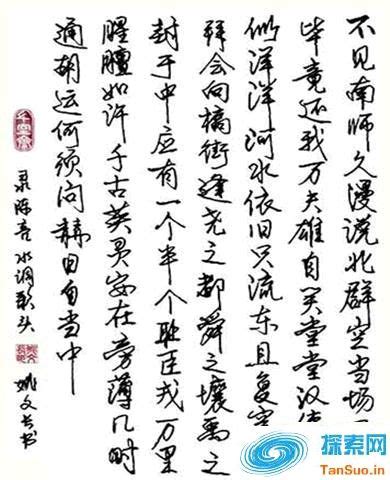 不见南师久漫说北群空当场
毕竟还我万夫雄自笑堂堂汉使
似洋洋河水依旧只流东且复穹
拜会向槁街逢尧之都舜之壤禹之
封于中应有一个半个耻臣戎万里
腥膻如许千古英灵安在旁薄几时
通胡运何须问赫日自当中
录陈亮水调歌头
姚文长书
探索网
TanSuo.in